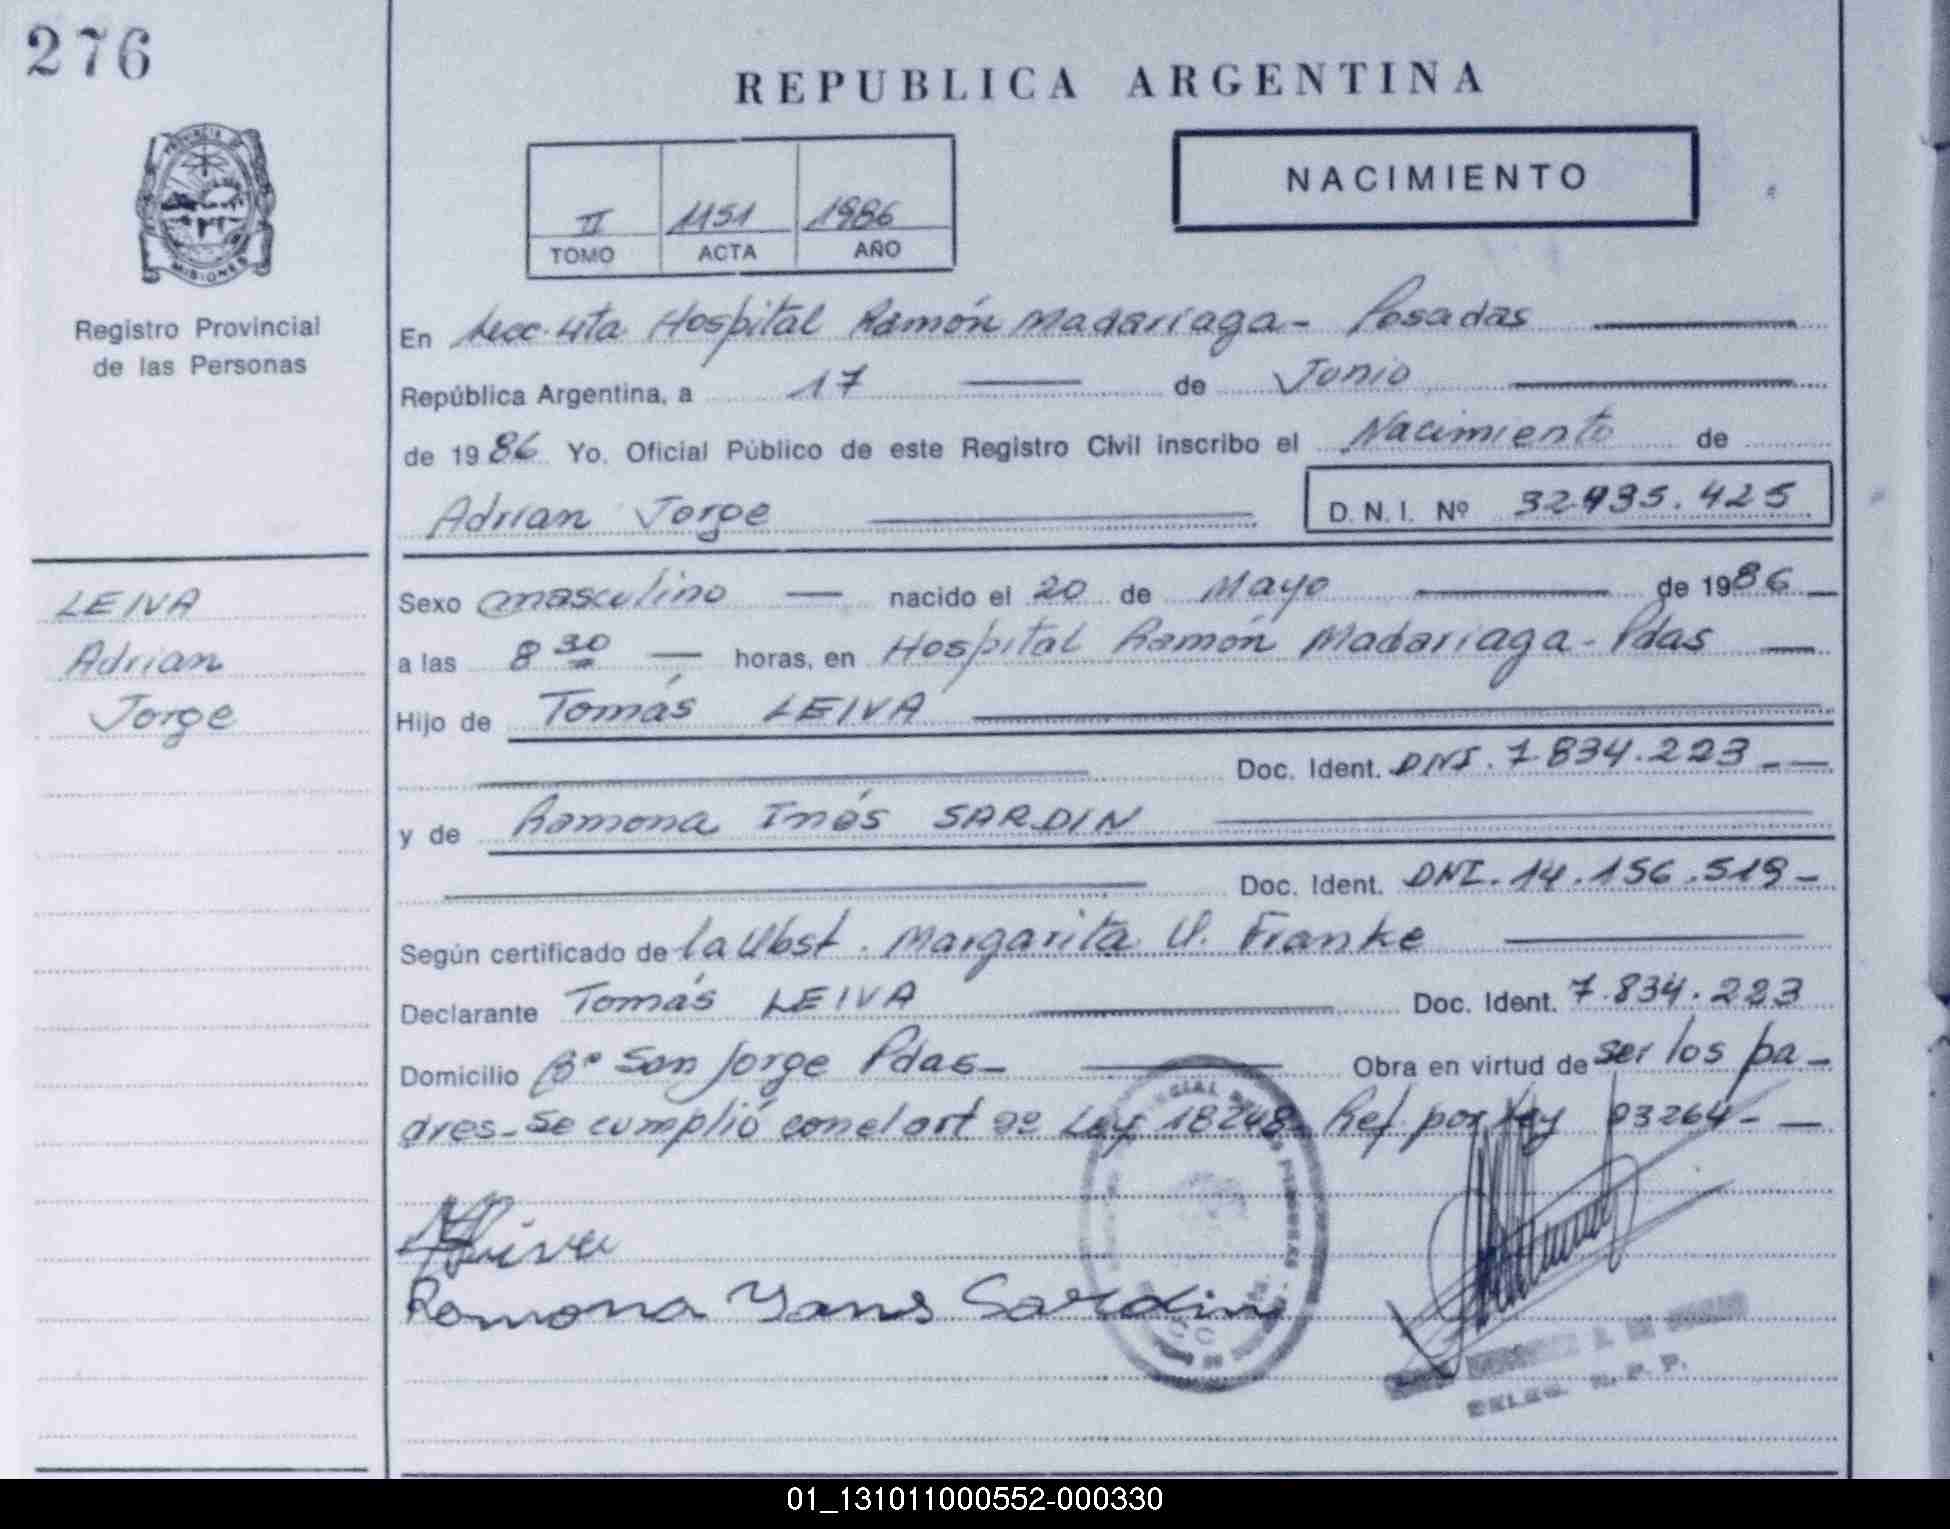 276
REPUBLICA ARGENTINA
PROVINCIA DE
MISIONES
Registro Provincial
de las Personas
NACIMIENTO
II 1151 1986
TOMO ACTA AÑO
En Secc. 4ta. Hospital Ramón Madariaga - Posadas
República Argentina, a 17 de Junio
de 1986 Yo. Oficial Público de este Registro Civil inscribo el Nacimiento de
Adrian Jorge D. N. I. Nº 32.935.425
LEIVA
Adrian
Jorge
Sexo masculino — nacido el 20 de Mayo de 1986
a las 8 30 — horas, en Hospital Ramón Madariaga - Pdas
Hijo de Tomás LEIVA
Doc. Ident. DNI. 7.834.223
y de Ramona Inés SARDIN
Doc. Ident. DNI. 14.156.519 -
Según certificado de la Obst. Margarita U. Franke
Declarante Tomás LEIVA Doc. Ident. 7.834.223
Domicilio Bº San Jorge Pdas - Obra en virtud de ser los pa -
dres - Se cumplió con el art 2º Ley 18248. Ref. por ley 23264 -
Leiva
Ramona Yans Sardin
DELEG. R. P. P.
01_131011000552-000330